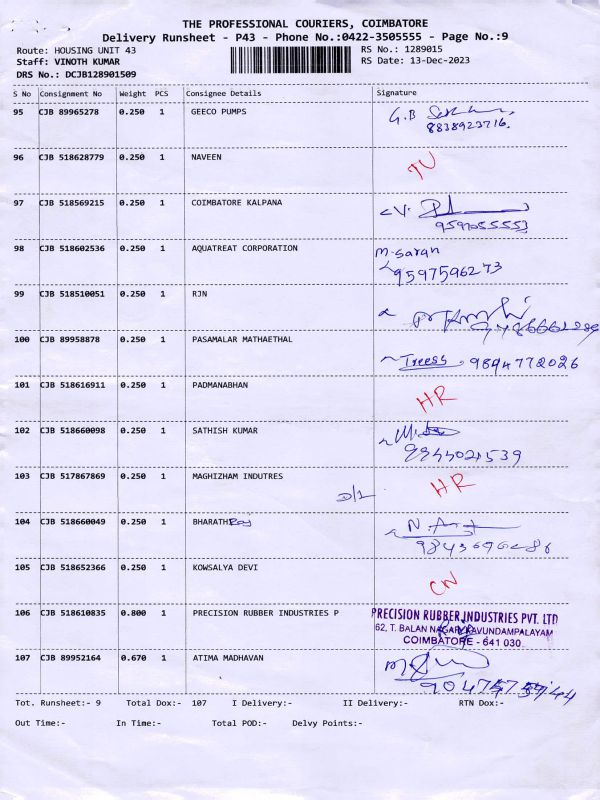 THE PROFESSIONAL COURIERS, COIMBATORE
Delivery Runsheet - P43 - Phone No.:0422-3505555 - Page No.:9
Route: HOUSING UNIT 43 RS No.: 1289015
Staff: VINOTH KUMAR RS Date: 13-Dec-2023
DRS No.: DCJB128901509
S No Consignment No Weight PCS Consignee Details Signature
95 CJB 89965278 0.250 1 GEECO PUMPS G.B
8838923716.
96 CJB 518628779 0.250 1 NAVEEN
97 CJB 518569215 0.250 1 COIMBATORE KALPANA V.
98 CJB 518602536 0.250 1 AQUATREAT CORPORATION M. Saran
9597596273
99 CJB 518510051 0.250 1 RJN
100 CJB 89958878 0.250 1 PASAMALAR MATHAETHAL Treesa 9894772026
101 CJB 518616911 0.250 1 PADMANABHAN HR
102 CJB 518660098 0.250 1 SATHISH KUMAR
103 CJB 517867869 0.250 1 MAGHIZHAM INDUTRES D/1 HR
104 CJB 518660049 0.250 1 BHARATH Raj
105 CJB 518652366 0.250 1 KOWSALYA DEVI CN
106 CJB 518610835 0.800 1 PRECISION RUBBER INDUSTRIES P PRECISION RUBBER INDUSTRIES PVT. LTD
62, T. BALAN NAGAR, KAVUNDAMPALAYAM
COIMBATORE - 641 030
107 CJB 89952164 0.670 1 ATIMA MADHAVAN
Tot. Runsheet:- 9 Total Dox:- 107 I Delivery:- II Delivery:- RTN Dox:-
Out Time:- In Time:- Total POD:- Delvy Points:-